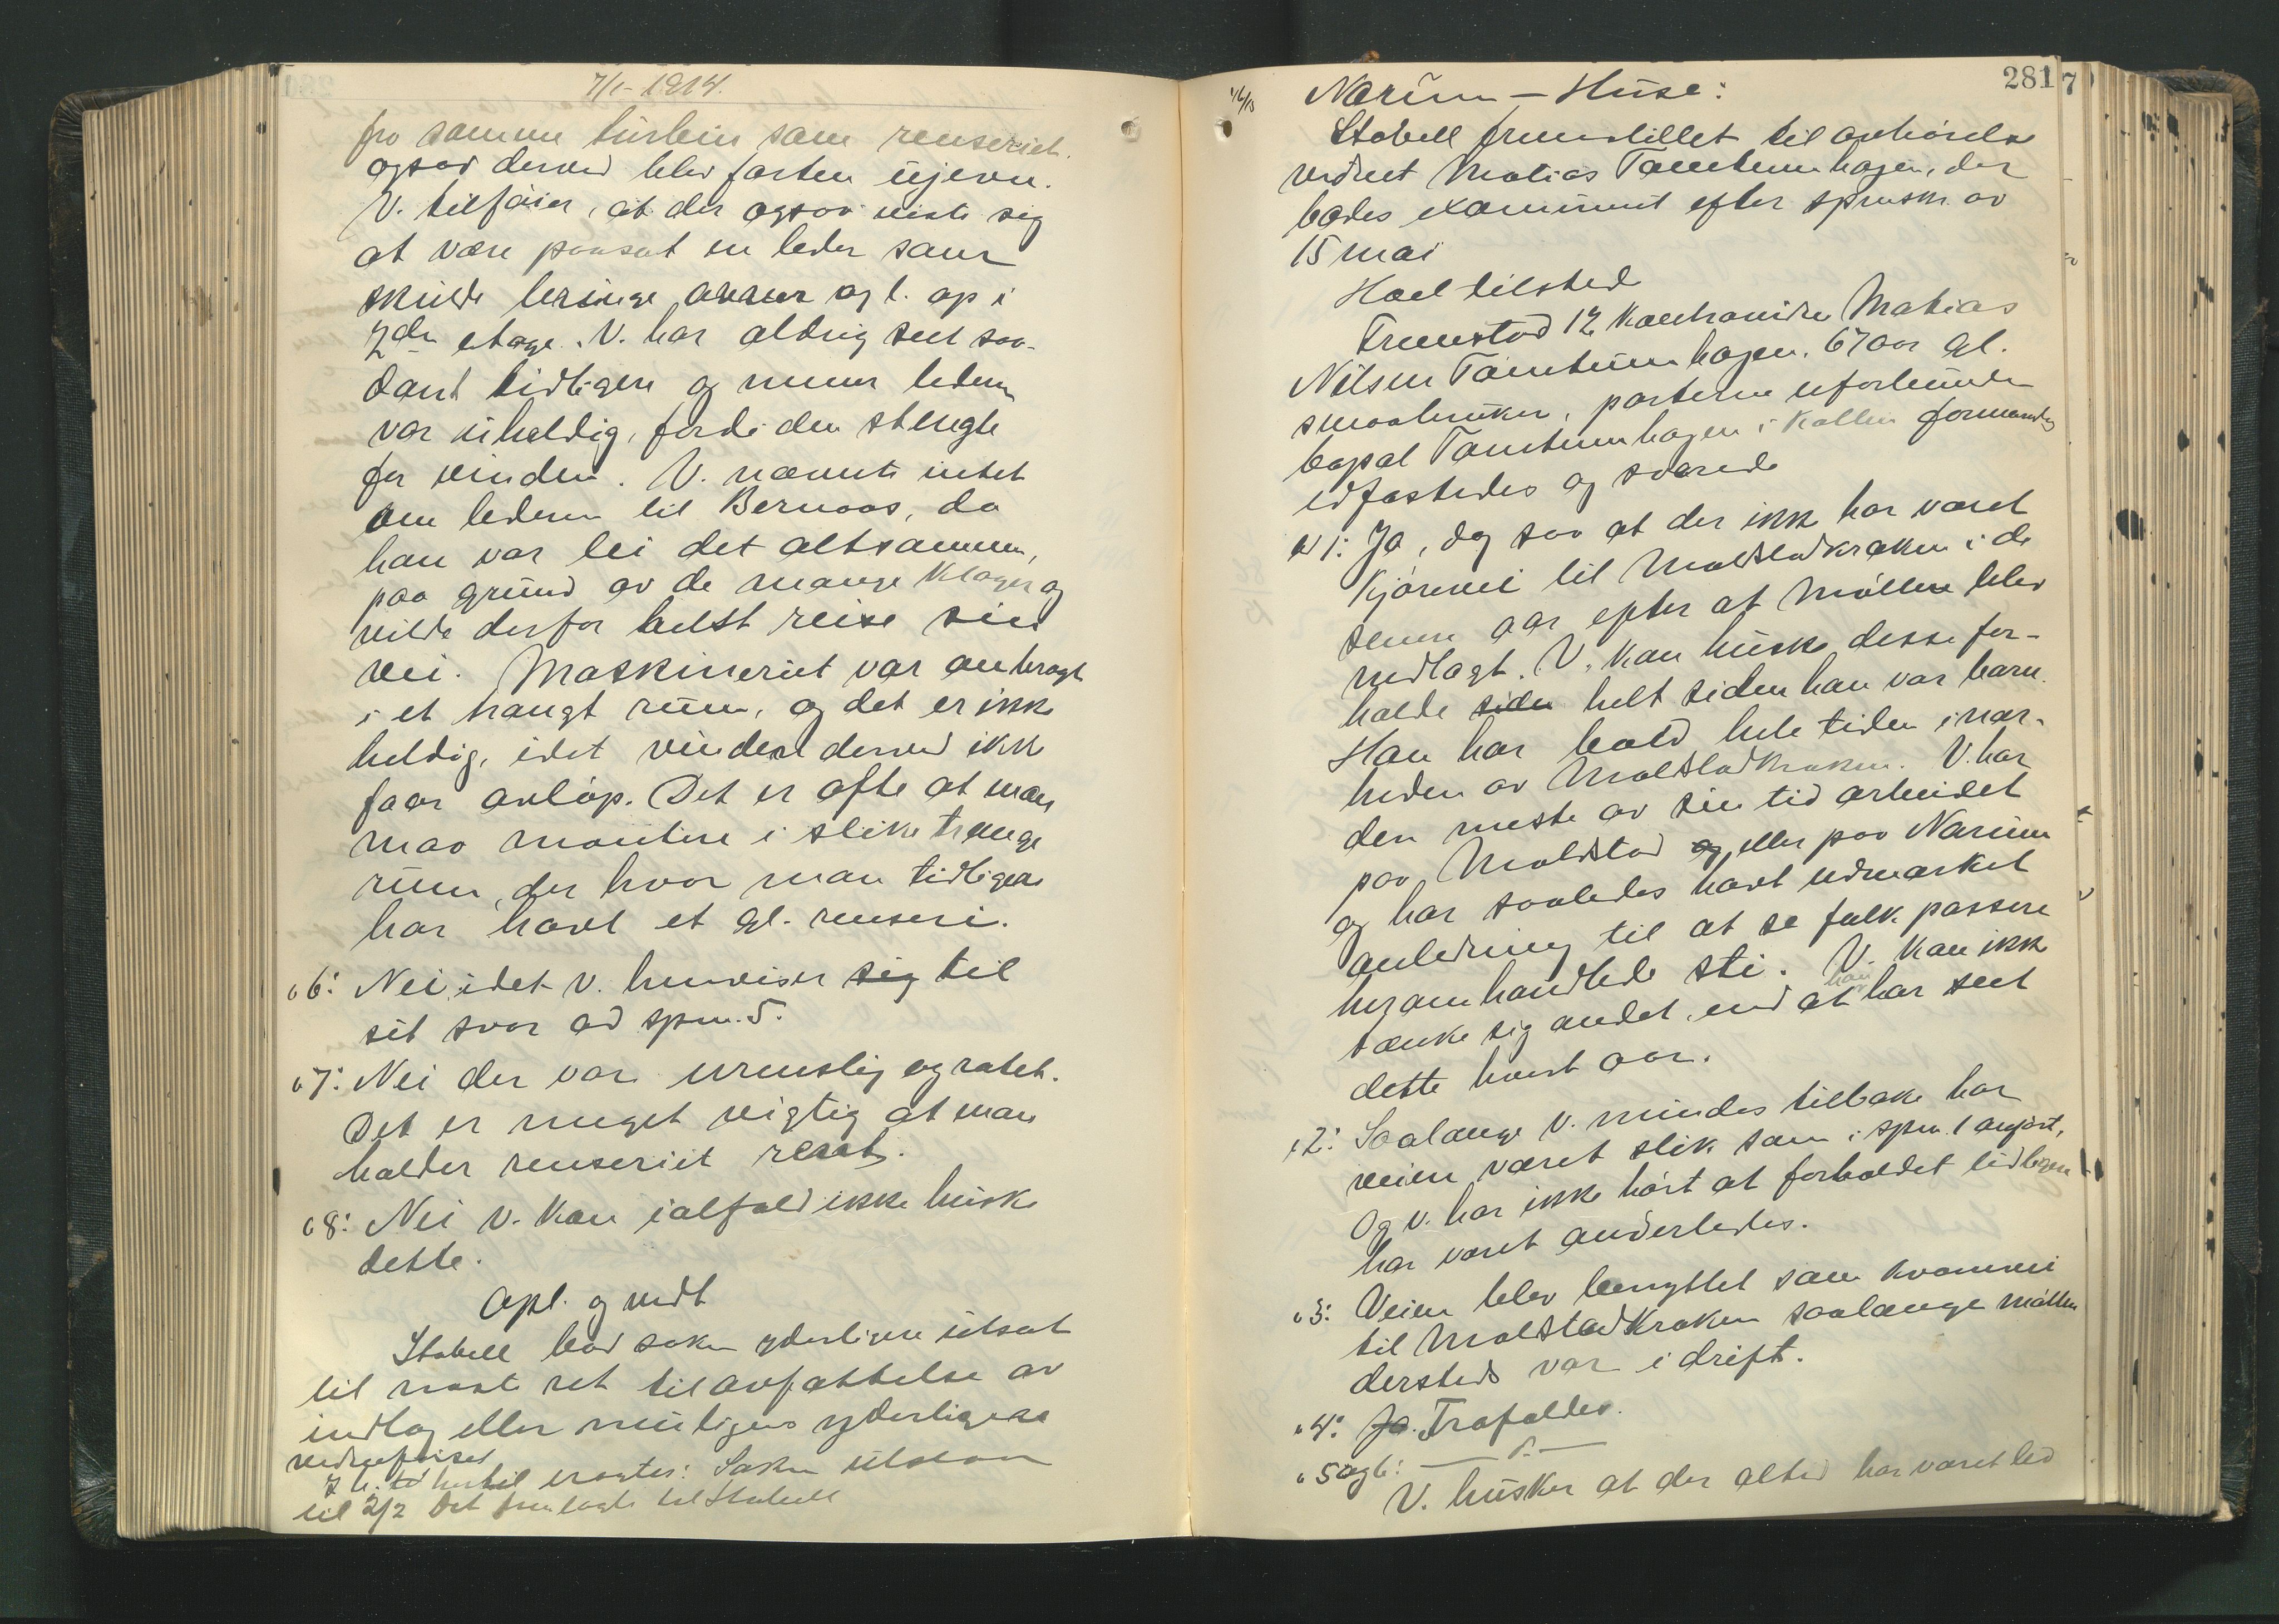 7/1-1914.
fra samme turbin som renseriet.
ogsaa derved blev farten ujevn.
V. tilföier, at der ogsaa viste sig
at være paasat en leder som
skulde bringe avner og l. op i
2den etage. V. har aldrig seet saa-
dant tidligere og mener lederen
var uheldig, fordi den stengte
for vinden. V. nævnte intet
om lederen til Bernaas, da
han var lei det altsammen,
paa grund av de mange klager og
vilde derfor helst reise sin
vei. Maskineriet var anbragt
i et trangt rum, og det er ikke
heldig, idet vinden derved ikke
faar avlöp. Det er ofte at man
maa montere i slike trange
rum, der hvor man tidligere
har havt et gl. renseri.
" 6: Nei, idet v. henviser sig til
sit svar ad spm. 5.
" 7: Nei der var urenslig og rotet.
Det er meget vigtig at man
holder renseriet rent.
" 8: Nei v. kan ialfald ikke huske
dette.
Opl. og vedt
Stabell bad saken yderligere utsat
til næste ret til avfattelse av
indlæg eller muligens yderligere
vidneförsel
hertil eragtes: Saken utstaar
til 2/2 Det fremlagte til Stabell
281
7
Nærum - Huse:
Stabell fremstillet til avhörelse
vidnet Matias Tømtumhagen, der
bades examineret efter spmsk. av
15 mai
Hoel tilsted
Fremstod 12 kontravidne Matias
Nilsen Tømtumhagen, 67 aar gl.
smaabruker, parterne uforbunden
bopæl Tømtumhagen i Kolbu formanedes
edfæstedes og svarede
ad 1: Ja, dog saa at der ikke har været
kjörevei til Molstadkroken i de
senere aar efter at Möllen blev
nedlagt. V. kan huske disse for-
holde siden helt siden han var barn.
Han har bodd hele tiden i nær-
heden av Molstadkroken. V. har
den meste av sin tid arbeidet
paa Molstad og eller paa Nærum
og har saaledes havt udmærket
anledning til at se folk passere
heromhandlede sti. V. kan ikke
tænke sig andet, end at han har seet
dette hvert aar.
" 2: Saalænge v. mindes tilbake har
veien været slik som i spm. 1 angivt,
Og v. har ikke hört at forholdet tidligere
har været anderledes.
" 3: Veien blev benyttet som kvernvei
til Molstadkroken saalænge möllen
dersteds var i drift.
" 4: Ja. Frafaldes.
" 5 og 6: — " —
V. husker at der altid har været led